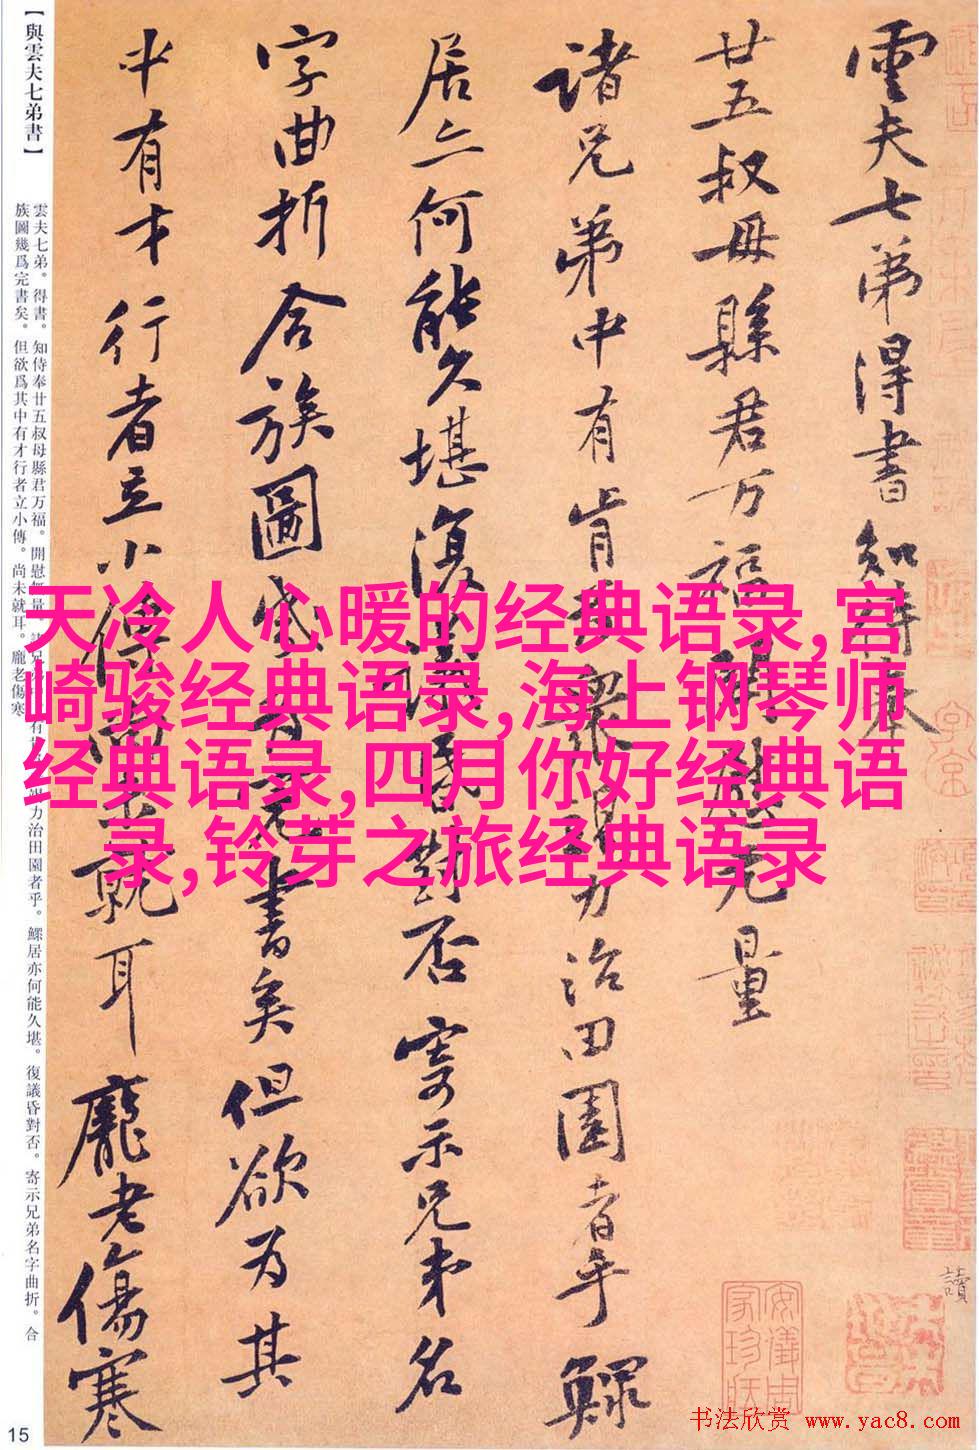 雲夫七弟得書知侍奉
廿五叔母縣君万福開慰无量
諸兄弟中有肯為眾竭力治田園者乎鰥
居亦何能久堪復議昏對否寄示兄弟名
字曲折合族圖幾為完書矣但欲為其
中有才行者立小傳尚未就耳龐老傷寒
讀
【與雲夫七弟書】
雲夫七弟。得書。知侍奉廿五叔母縣君万福。開慰無量。諸兄弟中有肯
力治田園者乎。鰥居亦何能久堪。復議昏對否。寄示兄弟名字曲折。合
族圖幾爲完書矣。但欲爲其中有才行者立小傳。尚未就耳。龐老傷寒
15
天冷人心暖的经典语录,宫
崎骏经典语录,海上钢琴师
经典语录,四月你好经典语
录,铃芽之旅经典语录
书法欣赏 www.yac8.com